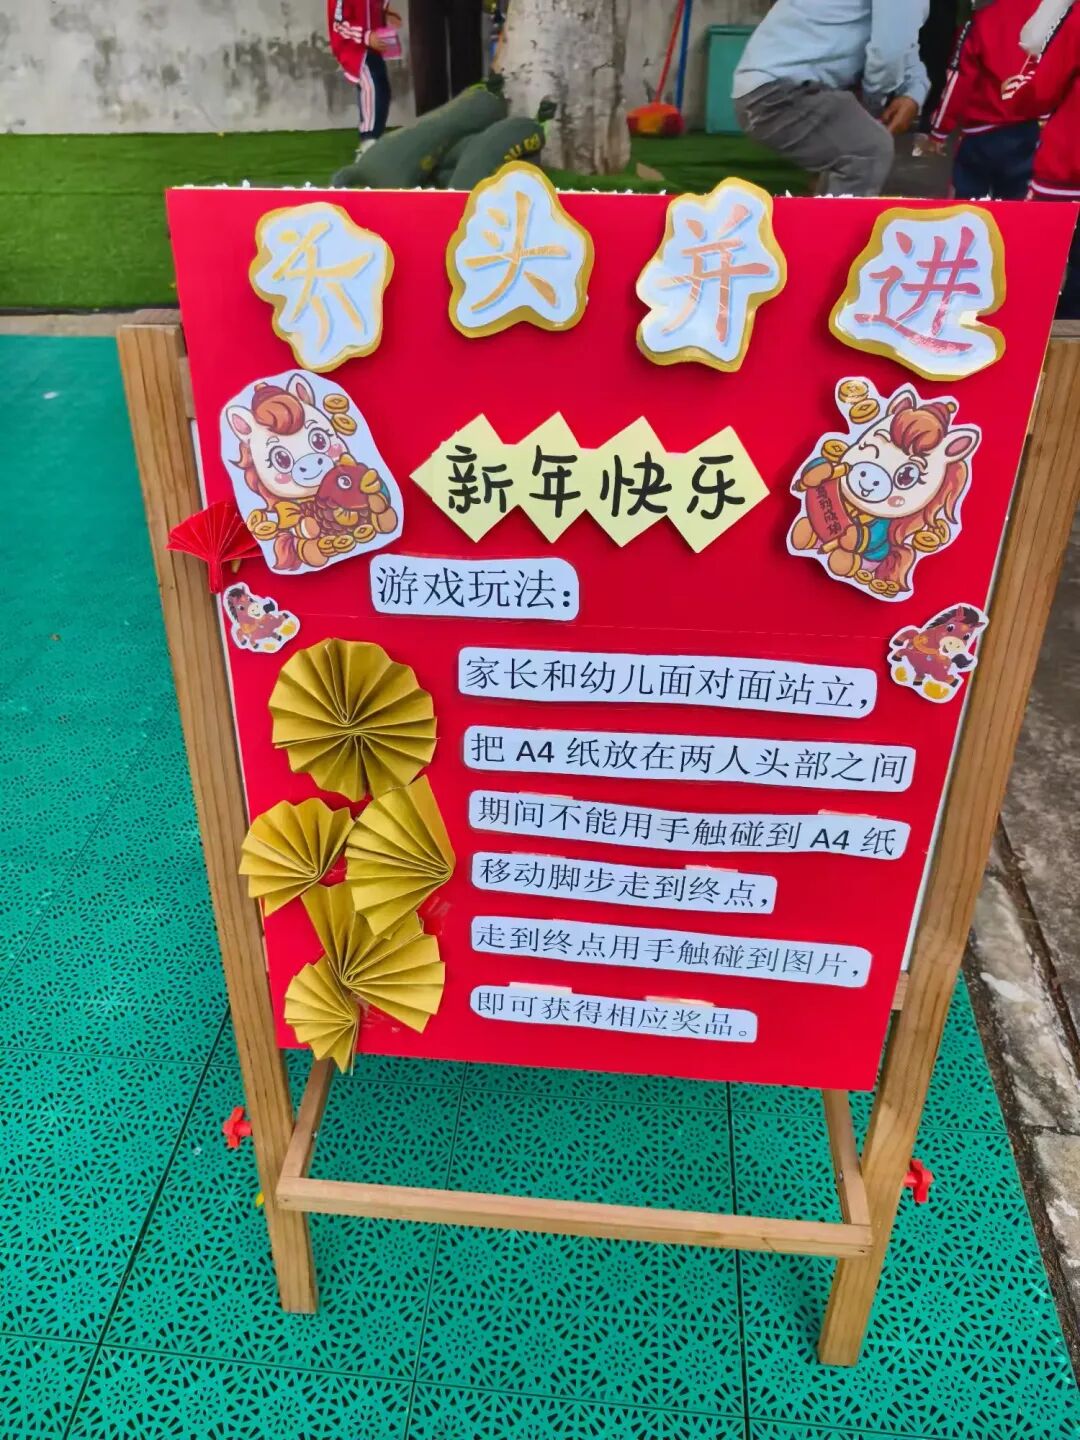 齐头并进
新年快乐
游戏玩法：
家长和幼儿面对面站立，
把 A4 纸放在两人头部之间
期间不能用手触碰到 A4 纸
移动脚步走到终点，
走到终点用手触碰到图片，
即可获得相应奖品。